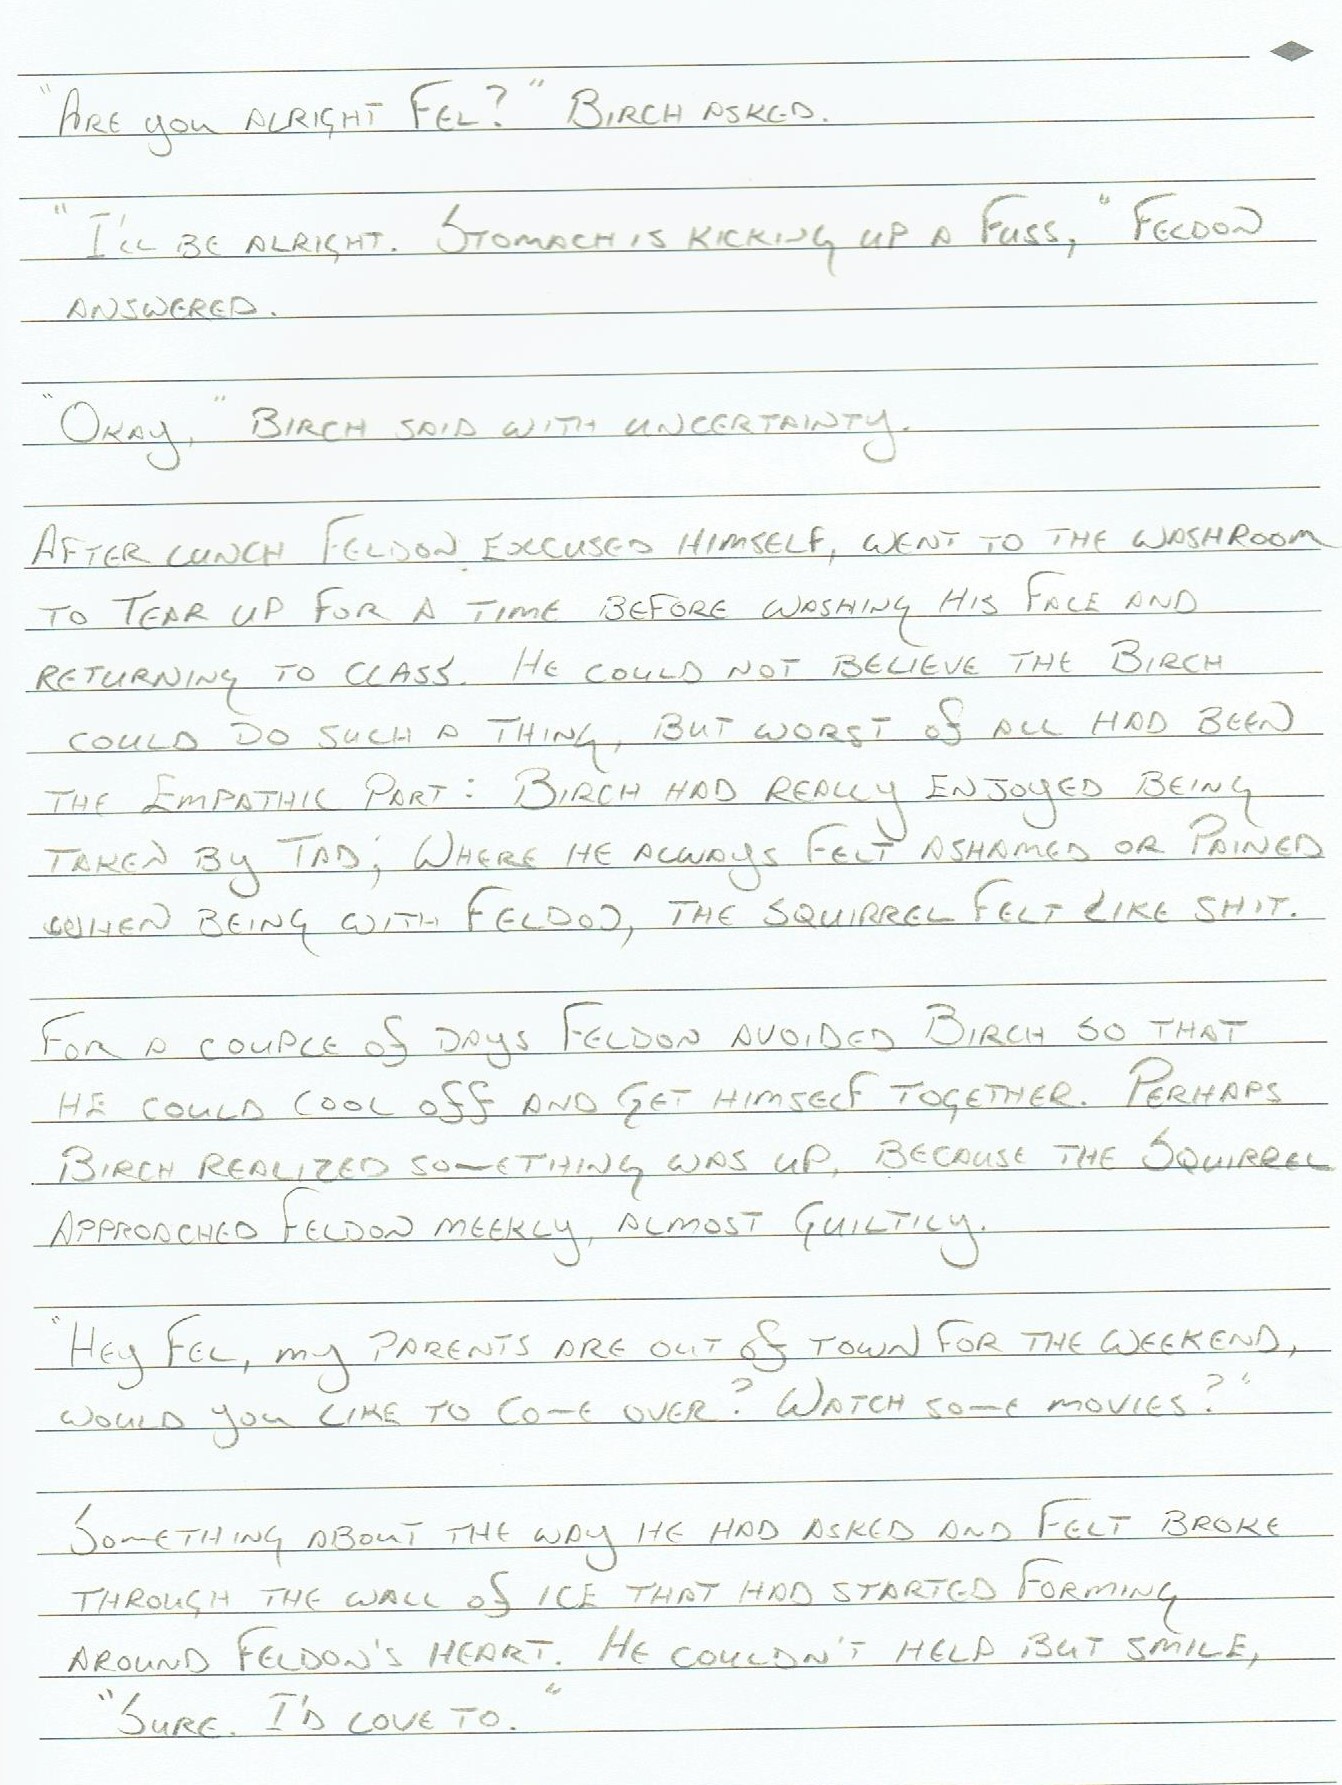 "Are you alright Fel?" Birch asked.
"I'll be alright. Stomach is kicking up a fuss," Feldon
answered.
"Okay," Birch said with uncertainty.
After lunch Feldon excused himself, went to the washroom
to tear up for a time before washing his face and
returning to class. He could not believe the Birch
could do such a thing, but worst of all had been
the empathic part: Birch had really enjoyed being
taken by Tad; where he always felt ashamed or pained
when being with Feldon, the squirrel felt like shit.
For a couple of days Feldon avoided Birch so that
he could cool off and get himself together. Perhaps
Birch realized something was up, because the squirrel
approached Feldon meekly, almost guiltily.
"Hey Fel, my parents are out of town for the weekend,
would you like to come over? Watch some movies?"
Something about the way he had asked and felt broke
through the wall of ice that had started forming
around Feldon's heart. He couldn't help but smile,
"Sure. I'd love to."